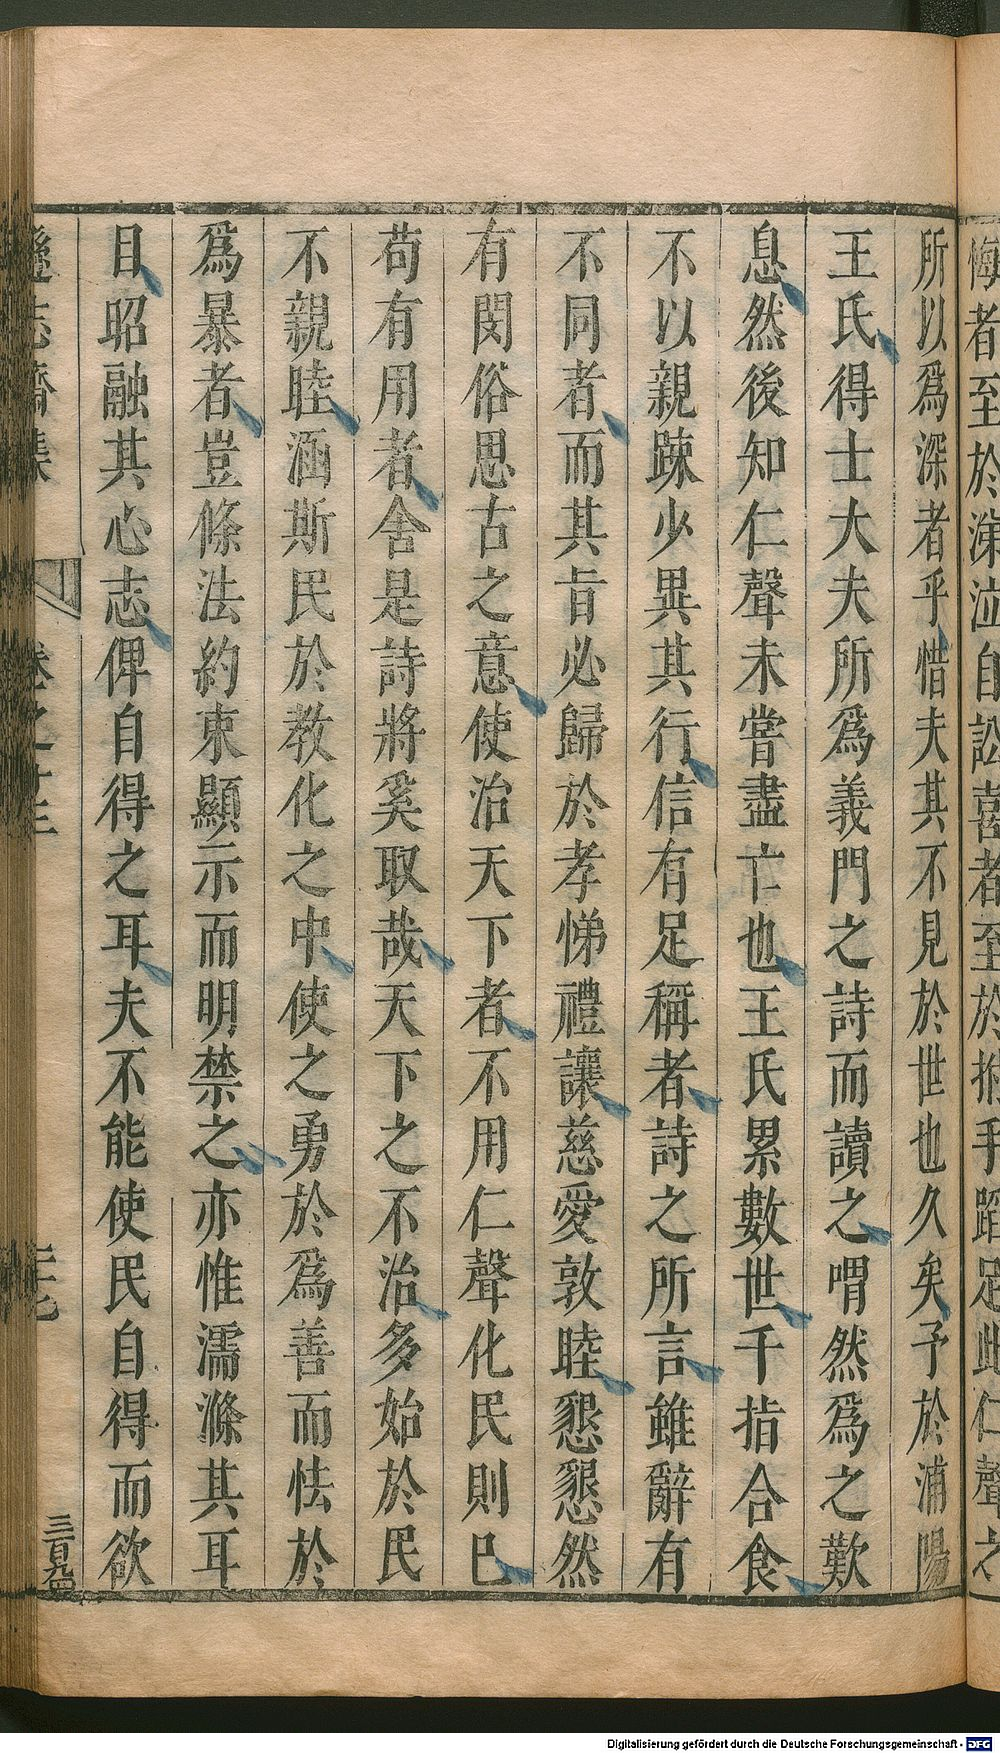 悔者至於涕泣自訟喜者至於拊手蹈足此仁聲之
所以爲深者乎惜夫其不見於世也久矣予於浦陽
王氏得士大夫所爲義門之詩而讀之喟然爲之歎
息然後知仁聲未嘗盡亡也王氏累數世千指合食
不以親踈少異其行信有足稱者詩之所言雖辭有
不同者而其旨必歸於孝悌禮讓慈愛敦睦懇懇然
有閔俗思古之意使治天下者不用仁聲化民則已
苟有用者舍是詩將奚取哉天下之不治多始於民
不親睦涵斯民於教化之中使之勇於爲善而怯於
爲暴者豈條法約束顯示而明禁之亦惟濡滌其耳
目昭融其心志俾自得之耳夫不能使民自得而欲
遜志齋集
卷之十三
三百九四
Digitalisierung gefördert durch die Deutsche Forschungsgemeinschaft - DFG